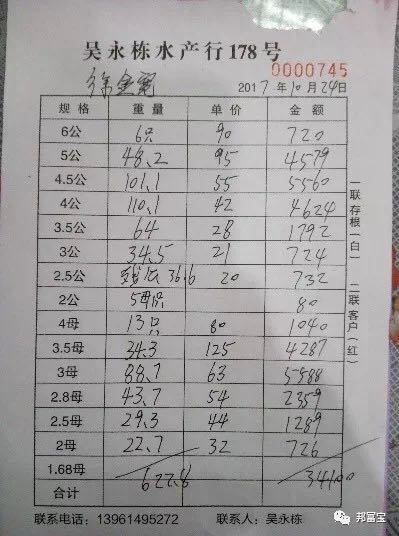 吴永栋水产行178号
0000745
徐金
2017年10月24日
规格 重量 单价 金额
6公 6只 90 720
5公 48.2 95 4579
4.5公 101.1 55 5560
4公 110.1 42 4624
3.5公 64 28 1792
3公 34.5 21 724
2.5公 36.6 20 732
2公 80
4母 13只 80 1040
3.5母 34.3 125 4287
3母 88.7 63 5588
2.8母 43.7 54 2359
2.5母 29.3 44 1289
2母 22.7 32 726
1.68母
合计 622.8 34100
联系电话：13961495272 联系人：吴永栋
一联存根(白) 二联客户(红)
邦富宝